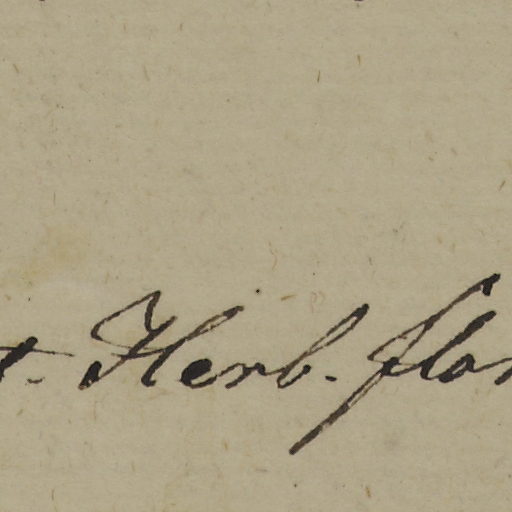 t. Herb. flor